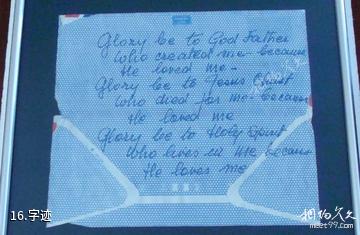 Glory be to God Father
Who created me because
He loved me -
Glory be to Jesus Christ
Who died for me because
He loved me
Glory be to Holy Spirit
Who lives in me because
He loves me
16.字迹
meet99.com